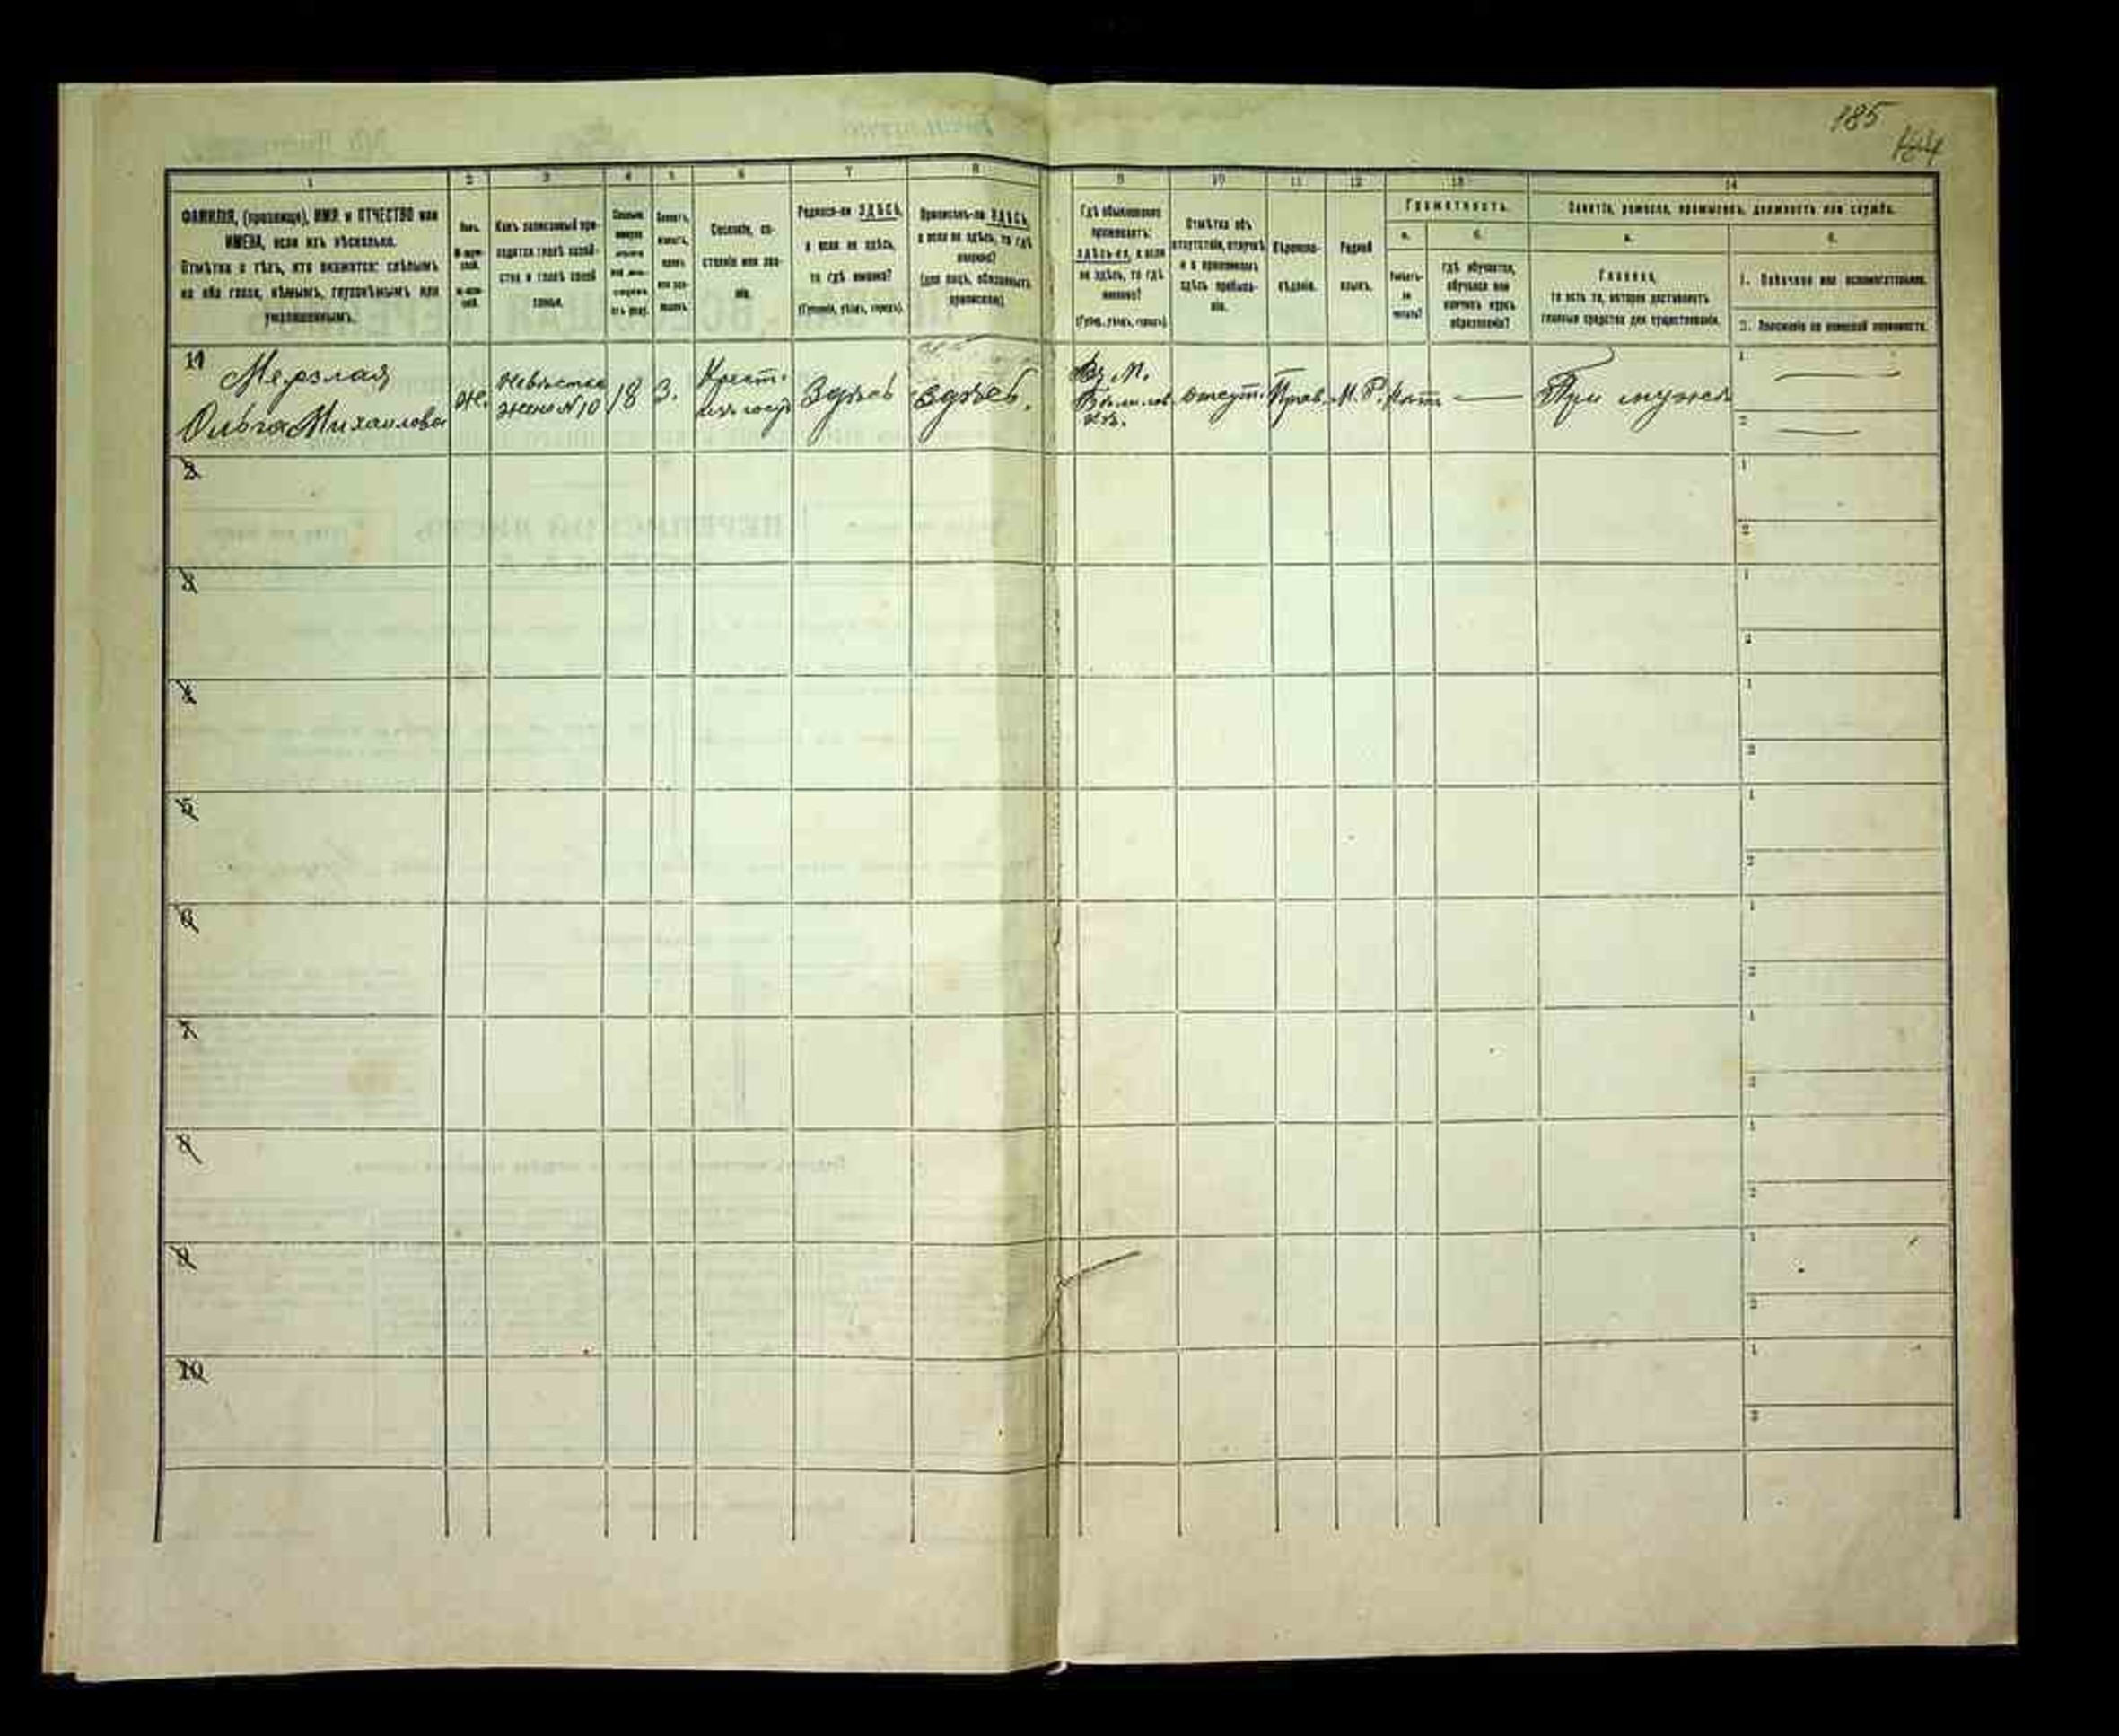 185
184
1
2
3
4
5
6
7
8
9
10
11
12
13
14
ФАМИЛІЯ, (прозвище), ИМЯ и ОТЧЕСТВО или
ИМЕНА, если ихъ нѣсколько.
Отмѣтка о тѣхъ, кто окажется: слѣпымъ
на оба глаза, нѣмымъ, глухонѣмымъ или
умалишеннымъ.
Полъ.
Какъ записанный при-
ходится главѣ хозяй-
ства и главѣ своей
семьи.
Сословіе, со-
стояніе или зва-
ніе.
Родился-ли ЗДѢСЬ,
а если не здѣсь,
то гдѣ именно?
(Губернія, уѣздъ, городъ).
Приписанъ-ли ЗДѢСЬ,
а если не здѣсь, то гдѣ
именно?
(для лицъ, обязанныхъ
припискою).
Гдѣ обыкновенно
проживаетъ:
здѣсь-ли, а если
не здѣсь, то гдѣ
именно?
(Губер., уѣздъ, городъ).
Отмѣтка объ
отсутствіи, отлучкѣ
и о временномъ
здѣсь пребыва-
ніи.
Вѣроиспо-
вѣданіе.
Родной
языкъ.
Грамотность.
а.
б.
Умѣетъ-
ли
читать?
гдѣ обучается,
обучался или
кончилъ курсъ
образованія?
Занятіе, ремесло, промыселъ, должность или служба.
а.
б.
Главное,
то есть то, которое доставляетъ
главныя средства для существованія.
1. Побочное или вспомогательное.
2. Положеніе по воинской повинности.
11
Мерзлая
Ольга Михаилова
Ж.
Невѣстка
жена №10
18
З.
Крест.
изъ госуд
Здѣсь
здѣсь.
Въ М.
отсут.
Прав.
М.Р.
Нѣтъ
При мужѣ
1
2
2
1
2
3
1
2
4
1
2
5
1
2
6
1
2
7
1
2
8
1
2
9
1
2
10
1
2